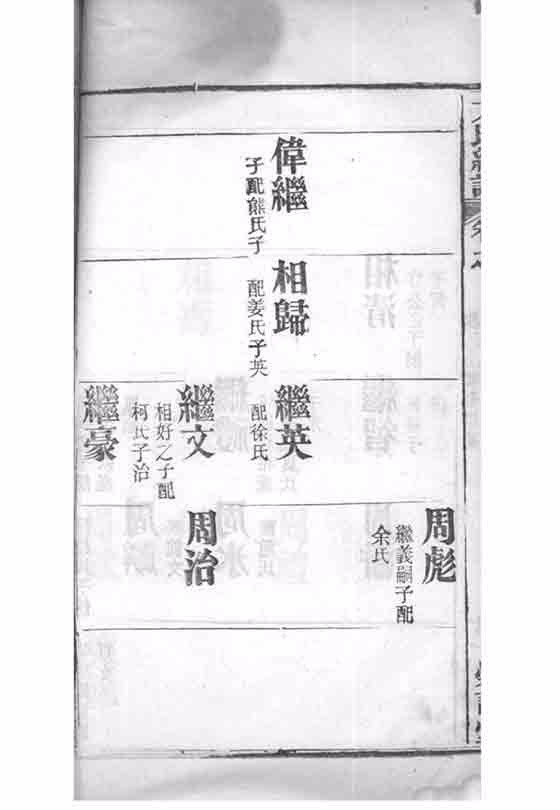 周彪
繼義嗣子配
余氏
偉繼
子配熊氏子
相歸
配姜氏子英
繼英
配徐氏
繼文
相好之子配
柯氏子治
周治
繼豪